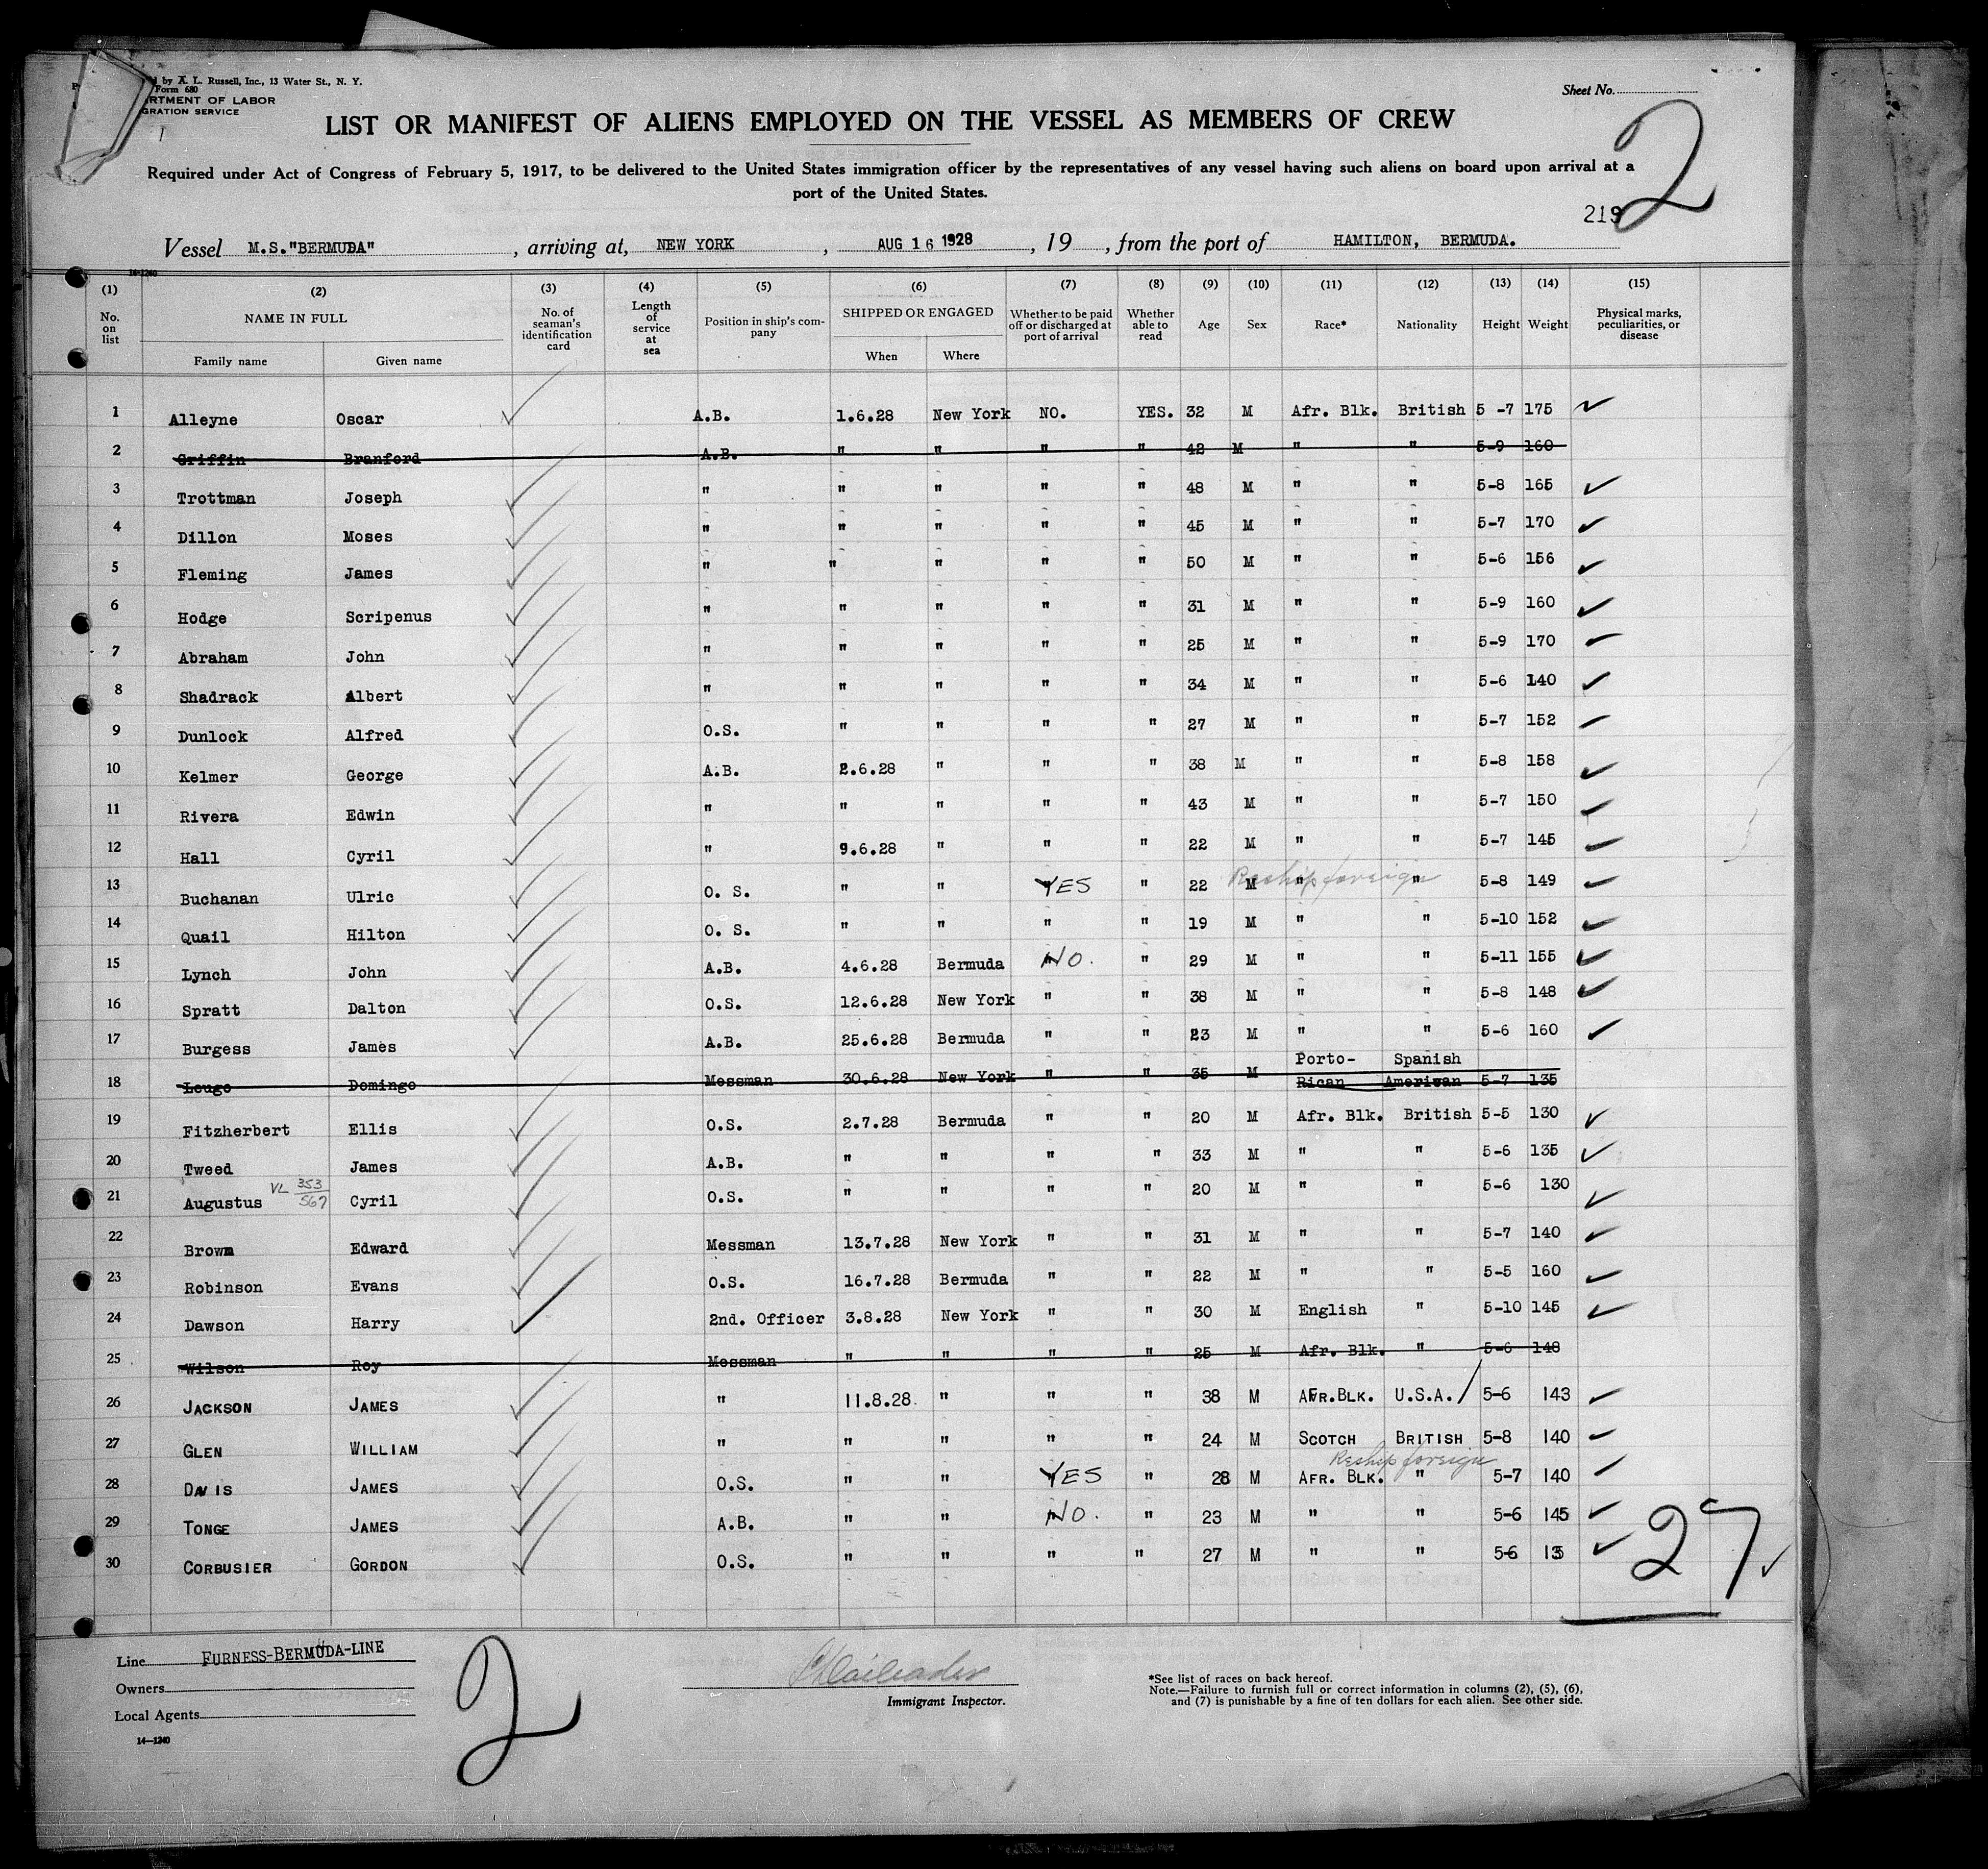 d by A. L. Russell, Inc., 13 Water St., N. Y.
Form 680
RTMENT OF LABOR
GRATION SERVICE
Sheet No.
2
LIST OR MANIFEST OF ALIENS EMPLOYED ON THE VESSEL AS MEMBERS OF CREW
Required under Act of Congress of February 5, 1917, to be delivered to the United States immigration officer by the representatives of any vessel having such aliens on board upon arrival at a
port of the United States.
219
Vessel M.S."BERMUDA", arriving at, NEW YORK, AUG 16 1928, 19, from the port of HAMILTON, BERMUDA.
14-1240
(1) (2) (3) (4) (5) (6) (7) (8) (9) (10) (11) (12) (13) (14) (15)
No. on list NAME IN FULL Family name Given name No. of seaman's identification card Length of service at sea Position in ship's company SHIPPED OR ENGAGED When Where Whether to be paid off or discharged at port of arrival Whether able to read Age Sex Race* Nationality Height Weight Physical marks, peculiarities, or disease
1 Alleyne Oscar A.B. 1.6.28 New York NO. YES. 32 M Afr. Blk. British 5 -7 175
2 Griffin Branford A.B. " " " " 42 M " " 5-9 160
3 Trottman Joseph " " " " " 48 M " " 5-8 165
4 Dillon Moses " " " " " 45 M " " 5-7 170
5 Fleming James " " " " " 50 M " " 5-6 156
6 Hodge Scripenus " " " " " 31 M " " 5-9 160
7 Abraham John " " " " " 25 M " " 5-9 170
8 Shadrack Albert " " " " " 34 M " " 5-6 140
9 Dunlock Alfred O.S. " " " " 27 M " " 5-7 152
10 Kelmer George A.B. 2.6.28 " " " 38 M " " 5-8 158
11 Rivera Edwin " " " " " 43 M " " 5-7 150
12 Hall Cyril " 9.6.28 " " " 22 M " " 5-7 145
Reship foreign
13 Buchanan Ulric O. S. " " YES " 22 M " " 5-8 149
14 Quail Hilton O. S. " " " " 19 M " " 5-10 152
15 Lynch John A.B. 4.6.28 Bermuda NO. " 29 M " " 5-11 155
16 Spratt Dalton O.S. 12.6.28 New York " " 38 M " " 5-8 148
17 Burgess James A.B. 25.6.28 Bermuda " " 23 M " " 5-6 160
18 Lougo Domingo Messman 30.6.28 New York " " 35 M Porto-Rican Spanish American 5-7 135
19 Fitzherbert Ellis O.S. 2.7.28 Bermuda " " 20 M Afr. Blk. British 5-5 130
20 Tweed James A.B. " " " " 33 M " " 5-6 135
21 Augustus VL 353/567 Cyril O.S. " " " " 20 M " " 5-6 130
22 Brown Edward Messman 13.7.28 New York " " 31 M " " 5-7 140
23 Robinson Evans O.S. 16.7.28 Bermuda " " 22 M " " 5-5 160
24 Dawson Harry 2nd. Officer 3.8.28 New York " " 30 M English " 5-10 145
25 Wilson Roy Messman " " " " 25 M Afr. Blk. " 5-6 148
26 JACKSON JAMES " 11.8.28. " " " 38 M AFR.BLK. U.S.A. 5-6 143
27 GLEN WILLIAM " " " " " 24 M SCOTCH BRITISH 5-8 140
Reship foreign
28 DAVIS JAMES O.S. " " YES " 28 M AFR. BLK. " 5-7 140
29 TONGE JAMES A.B. " " NO. " 23 M " " 5-6 145
30 CORBUSIER GORDON O.S. " " " " 27 M " " 5-6 13
27
Line FURNESS-BERMUDA-LINE
Owners
Local Agents
14—1240
2
Immigrant Inspector.
*See list of races on back hereof.
Note.—Failure to furnish full or correct information in columns (2), (5), (6),
and (7) is punishable by a fine of ten dollars for each alien. See other side.